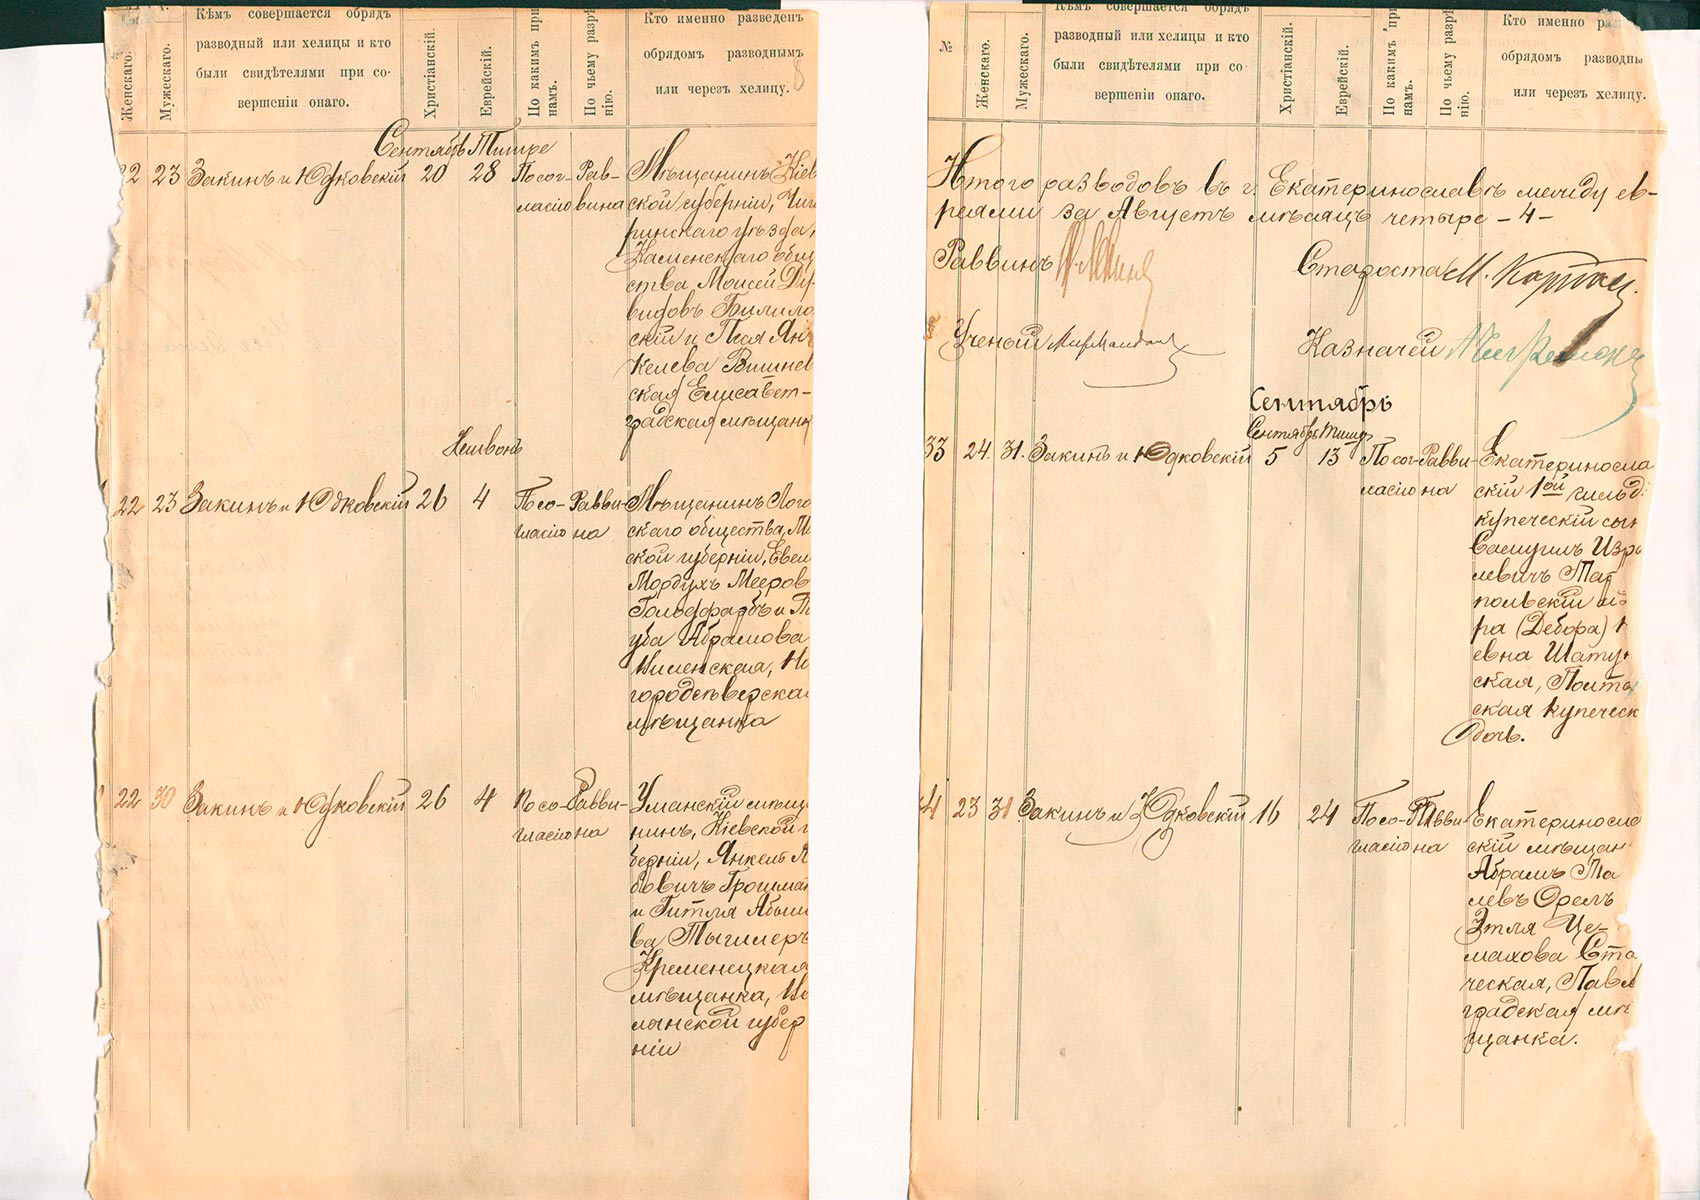 Женскаго.
Мужескаго.
Кѣмъ совершается обрядъ
разводный или хелицы и кто
были свидѣтелями при со-
вершеніи онаго.
Христіанскій.
Еврейскій.
По какимъ при
намъ.
По чьему разрѣ
нію.
Кто именно разведенъ
обрядомъ разводнымъ
или черезъ хелицу.
8
Сентябрь Тишре
22 23 Закинъ и Юдковскій 20 28 По сог- Рав- Мѣщанинъ Кіев
ласію вина ской губерніи, Чиги
ринскаго уѣзда,
Каменскаго общ
ства Моисей Да-
видовъ
скій и Песя Ян-
келева Вишнев
ская Елисавет-
градская мѣщанк
Хешвонъ
22 23 Закинъ и Юдковскій 26 4 По со- Равви- Мѣщанинъ Лого
гласію на скаго общества, Ми
ской губерніи,
Мордухъ Мееров
Гольдфарбъ и
Абрамова
городсѣверская
мѣщанка
22 30 Закинъ и Юдковскій 26 4 По со- Равви- Уманскій мѣща
гласію на нинъ, Кіевской г
берніи, Янкель
Грошман
и Гитля Абыш
ва
Кременецкая
мѣщанка, Во
лынской губер
ніи
№
Женскаго.
Мужескаго.
Кѣмъ совершается обрядъ
разводный или хелицы и кто
были свидѣтелями при со
вершеніи онаго.
Христіанскій.
Еврейскій.
По какимъ при
намъ.
По чьему разрѣ
нію.
Кто именно раз
обрядомъ разводны
или черезъ хелицу.
Итого разводовъ въ г. Екатеринославѣ между ев-
реями за Августъ мѣсяцъ четыре - 4 -
Раввинъ Староста М. Карпас
Ученый Казначей
Сентябрь
Сентябрь Тишре
33 24. 31. Закинъ и Юдковскій 5 13 По сог- Равви- Екатеринослав
ласію на скій 1ой гильд:
купеческій сын
Самуилъ Изра
левичъ
польскій и
ра (Дебора)
евна Шату
ская, Полта
ская купеческ
дочь.
44 23 31 Закинъ и Юдковскій 16 24 По со- Равви- Екатеринослав
гласію на скій мѣщан
Абрамъ
левъ Орелъ
Этля Це-
махова Ста
ческая, Павл
градская мѣ
щанка.